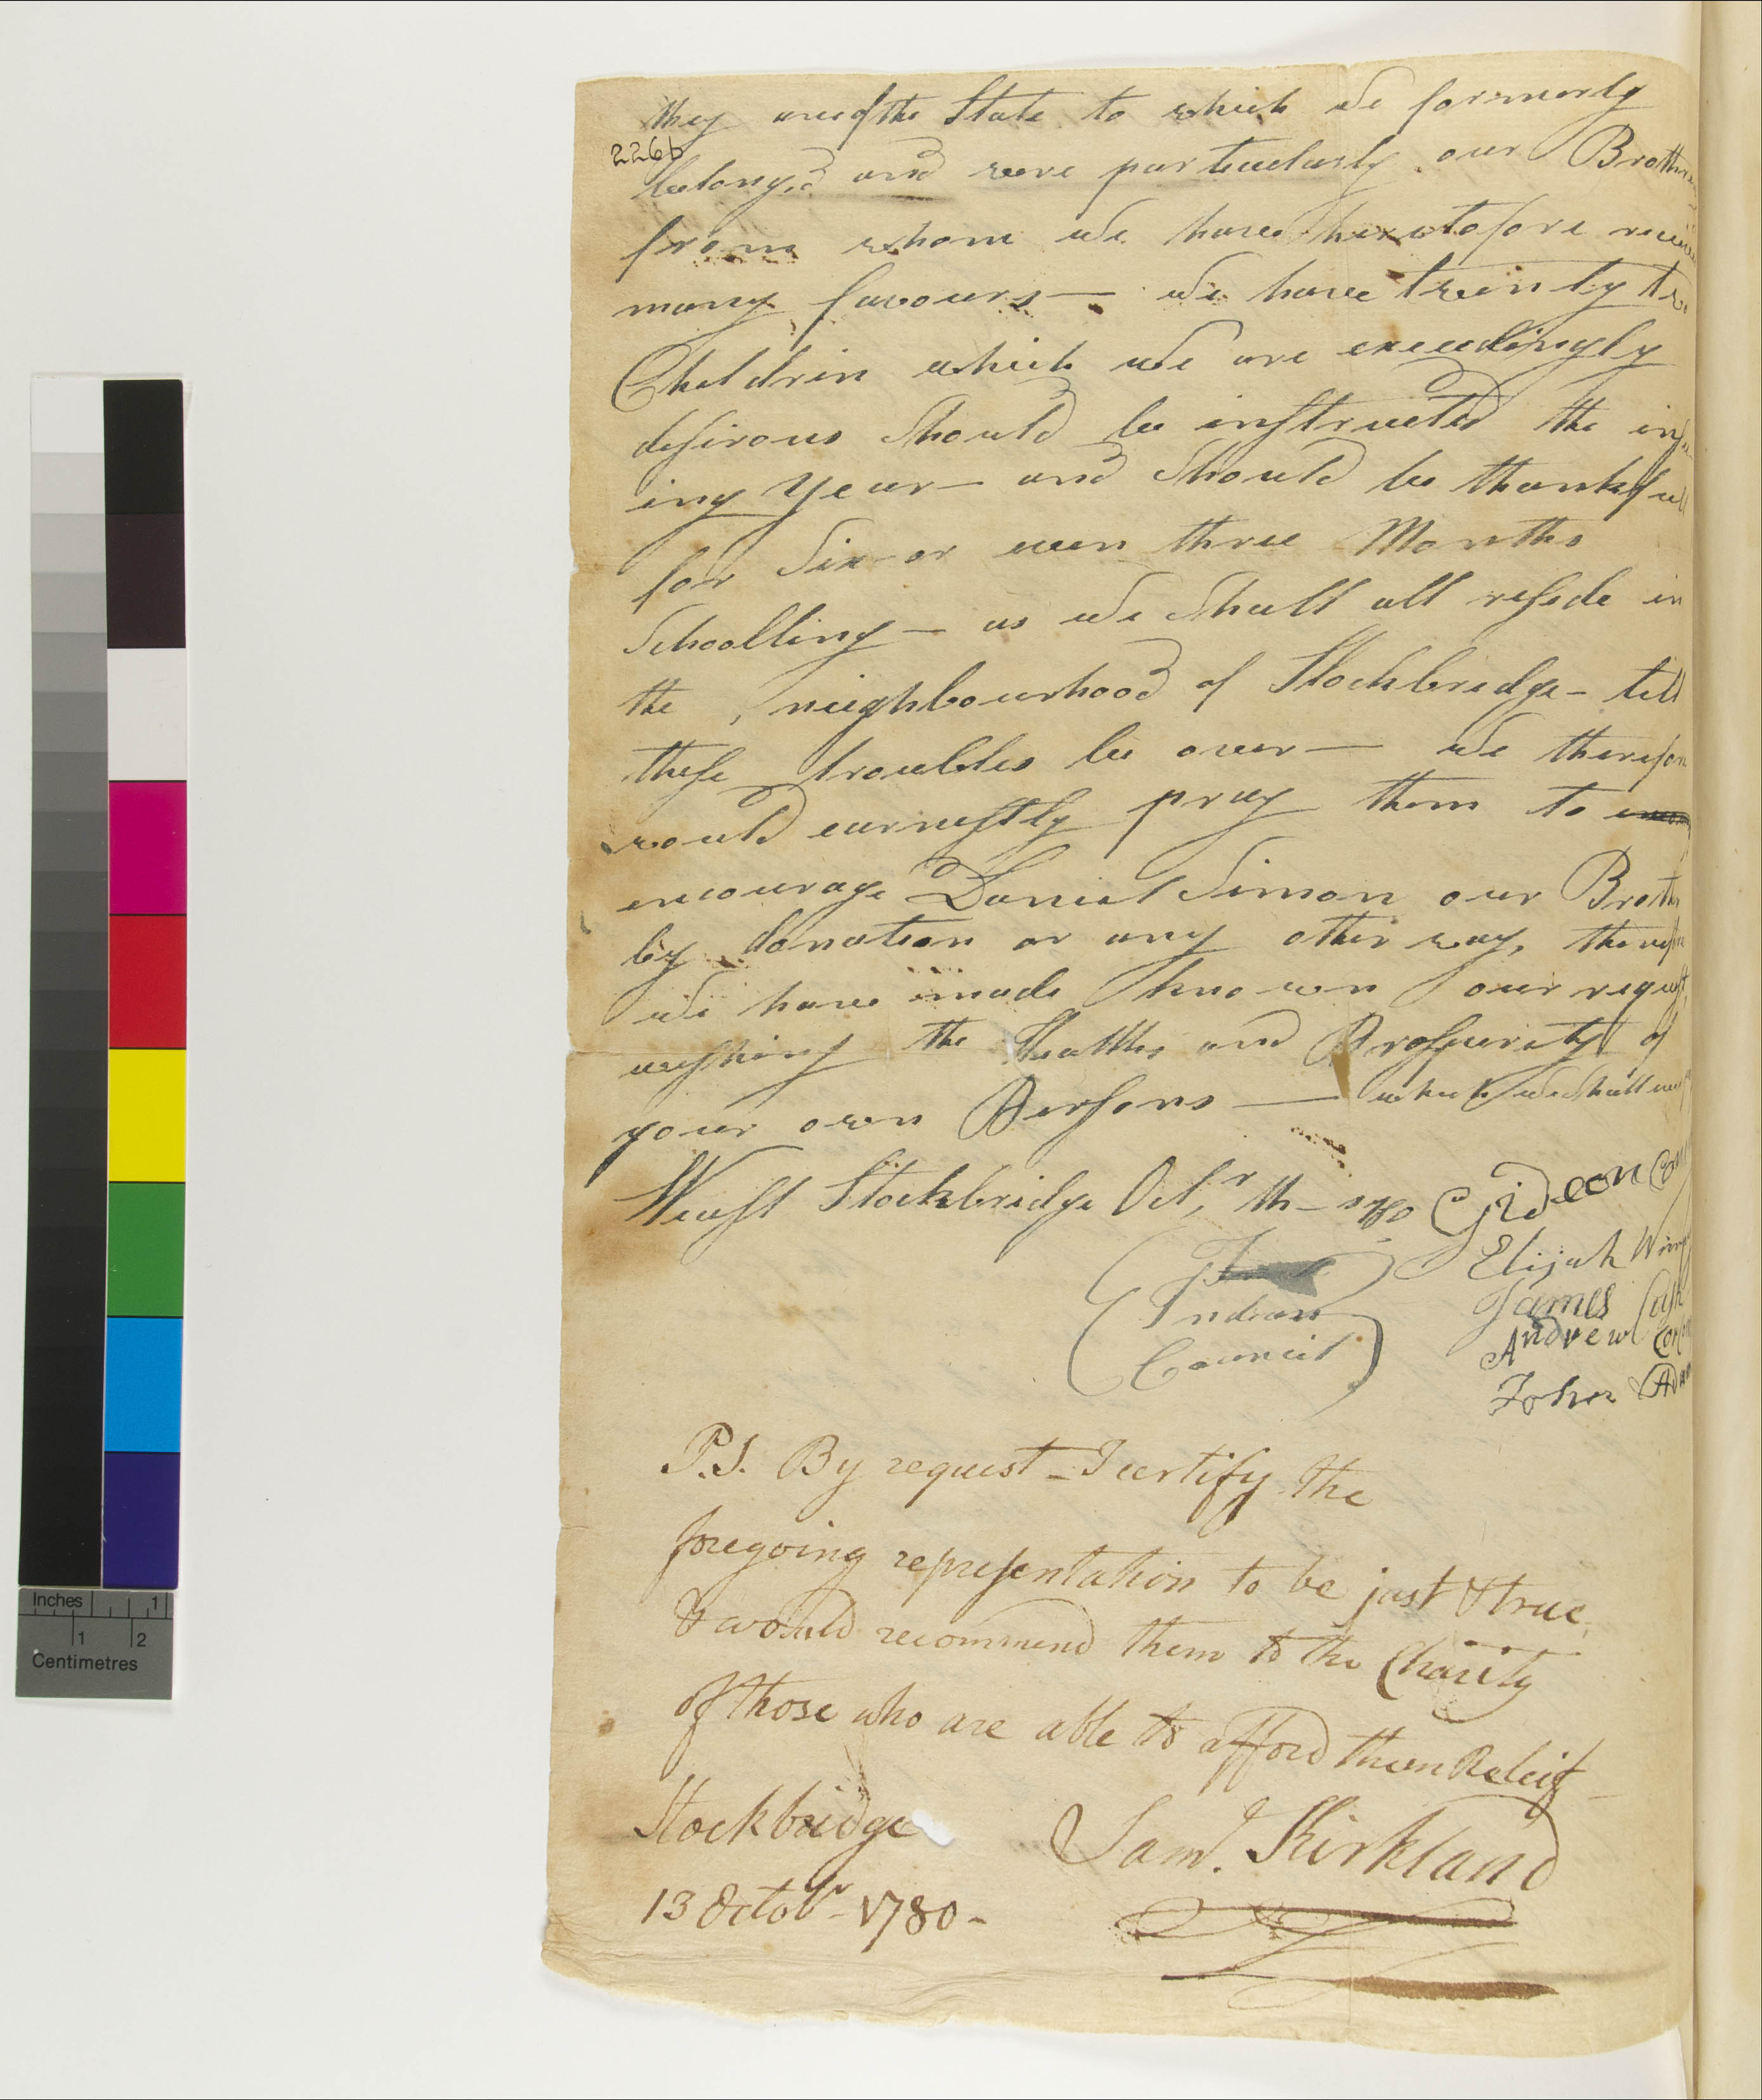 they are of the State to which we formerly
226b
belong,d and were particularly our Brothren
from whom we have heretofore receiv
many favours — we have twenty two
Children which we are exceedingly
desirous should be instructed the insu
ing Year — and should be thankfull
for Six or even three Months
Schoolling — as we shall all reside in
the neighbourhood of Stockbridge — till
these troubles be over — we therefore
would earnestly pray them to
encourage Daniel Simon our Broth
by donation or any other way, therefor
we have made known our request,
wishing the Health and Prosperity of
your own Persons — which we shall
West Stockbridge Oct,r th — 1780 Gideon Com
Elijah Wimp
Indian James
Council Andrew Cor
John Adam
P.S. By request — I certify the
foregoing representation to be just & true
& would recommend them to the Charity
of those who are able to afford them Releif —
Stockbridge Saml. Kirkland
13 Octobr. 1780 –
Inches 1
1 2
Centimetres